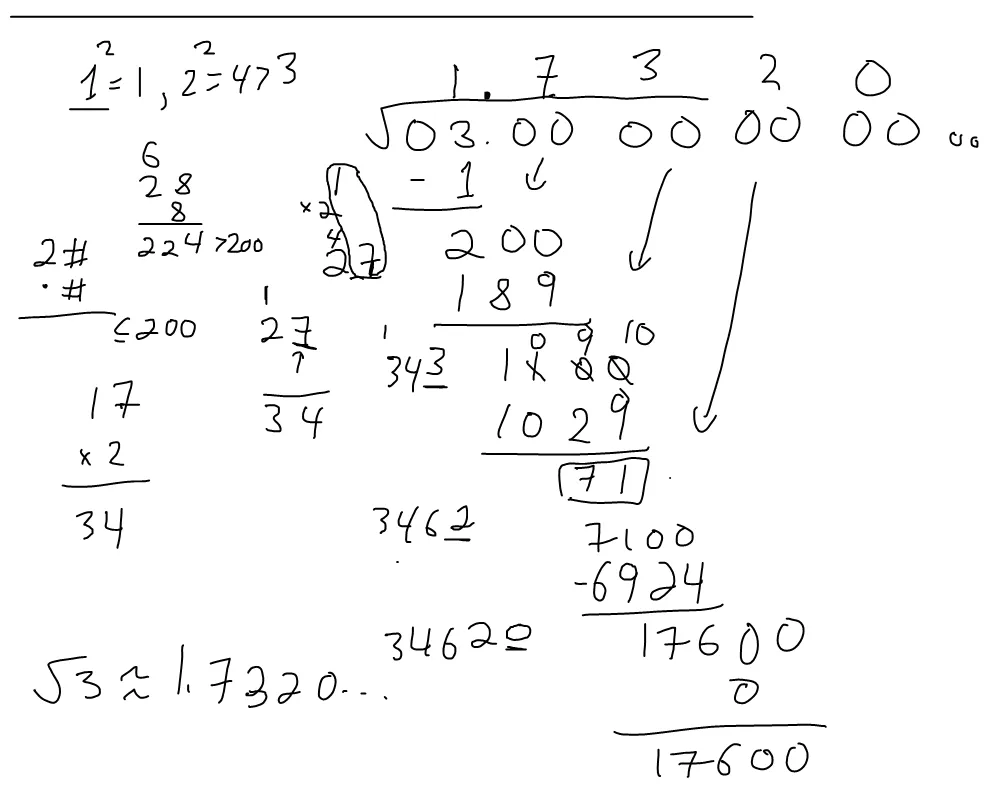 1² = 1, 2² = 4 > 3
1.7 3 2 0
√03.00 00 00 00 ..
- 1
200
189
0 9 10
1100
1029
71
7100
-6924
17600
0
17600
6
28
8
224 > 200
2#
·#
≤200
17
x 2
34
1
x2
4
27
1
27
↑
34
1
343
3462
34620
√3 ≈ 1.7320...